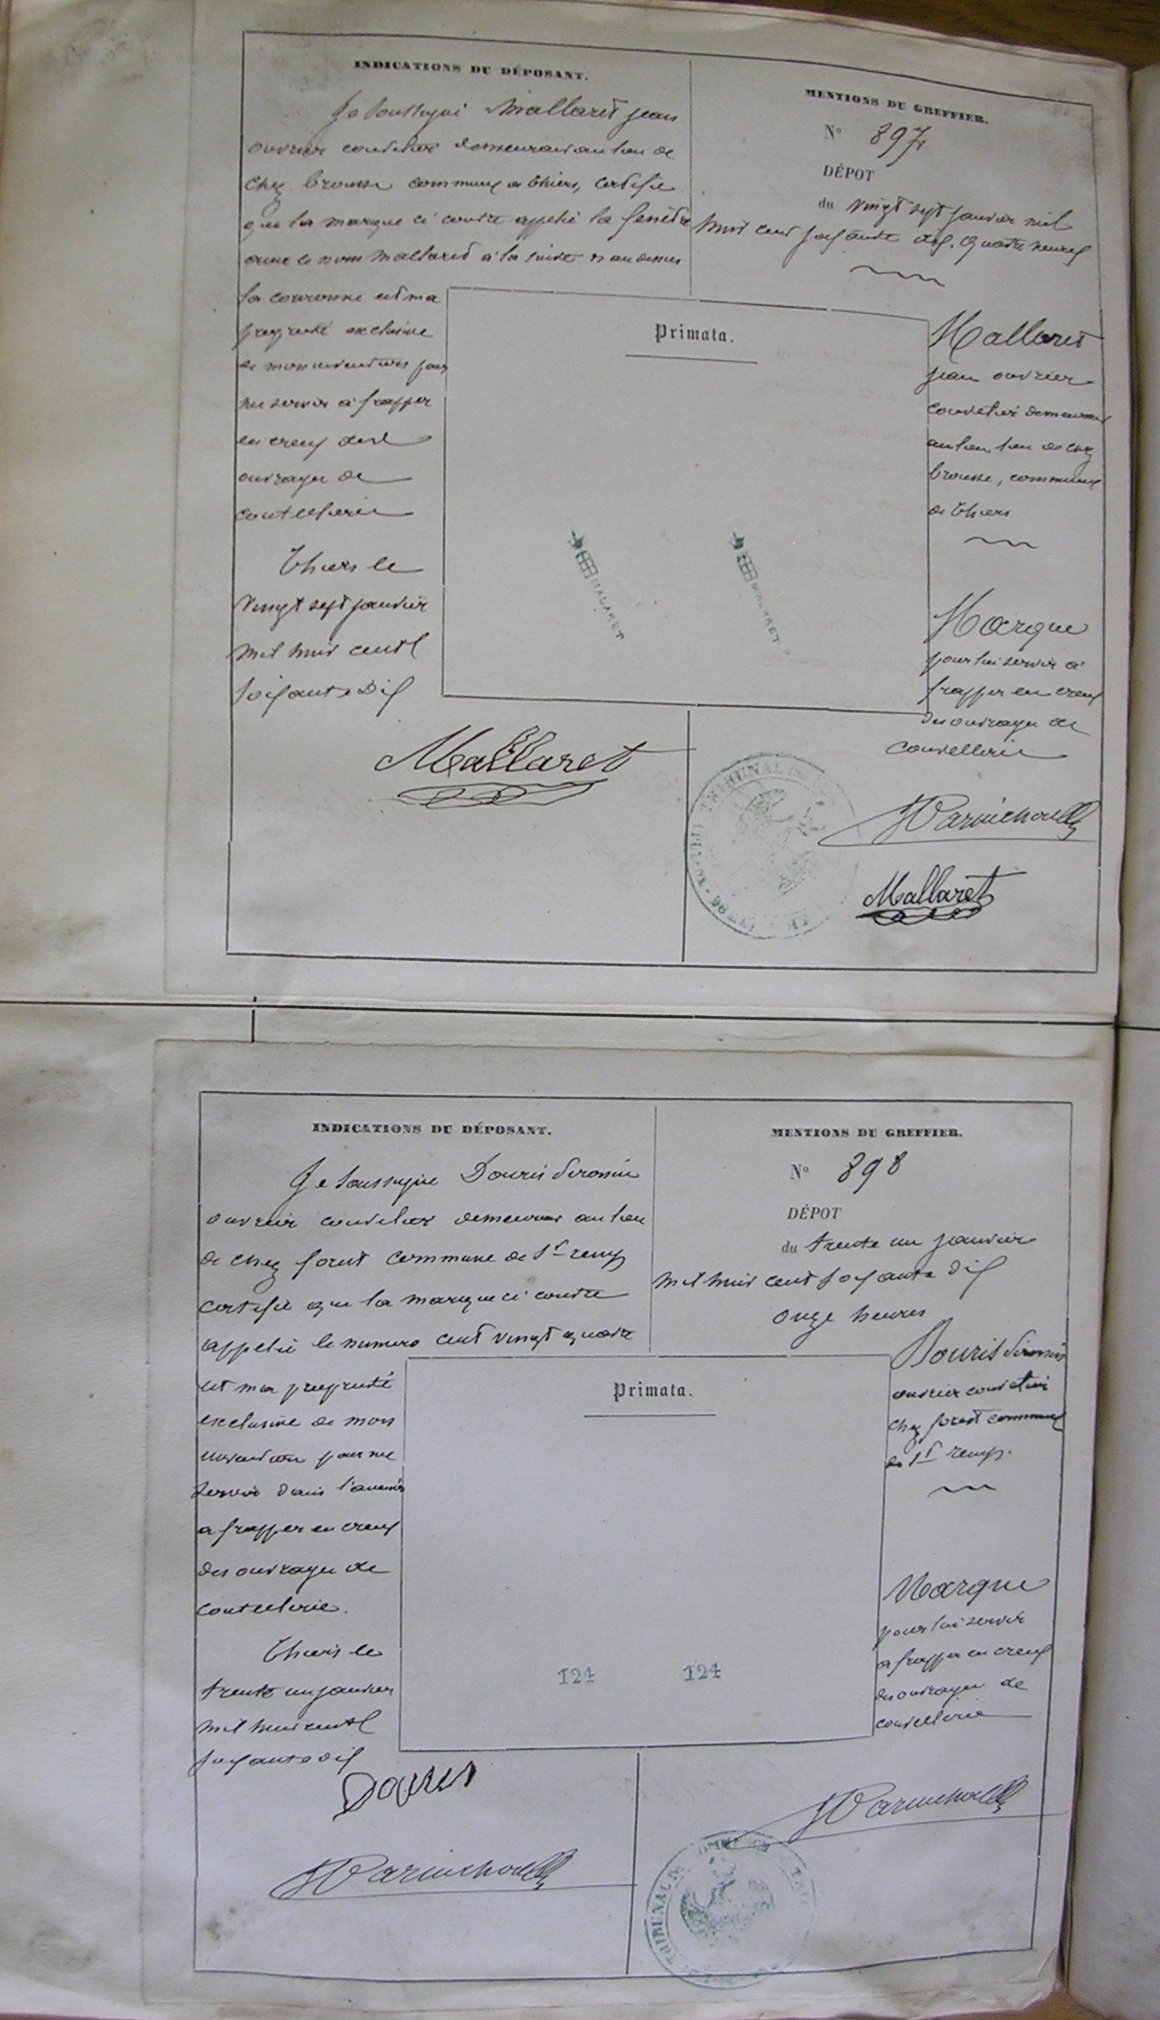 INDICATIONS DU DÉPOSANT.
Je soussigné Mallaret Jean
ouvrier coutelier demeurant au lieu de
chez brousse commune de thiers, certifie
que la marque ci contre appelé la fenêtre
avec le nom Mallaret à la suite et au dessus
la couronne est ma
propriété exclusive
de mon invention pour
me servir à frapper
en creux des
ouvrages de
coutellerie
Thiers le
vingt sept janvier
mil huit cent
soixante dix
Mallaret
MENTIONS DU GREFFIER.
N° 897
DÉPOT
du vingt sept janvier mil
huit cent soixante dix, quatre heures
Primata.
MALARET
MALARET
Mallaret
jean ouvrier
coutelier demeurant
au lieu de chez
brousse, commune
de thiers
Marque
pour lui servir à
frapper en creux
des ouvrages de
coutellerie
TRIBUNAL DE
Mallaret
INDICATIONS DU DÉPOSANT.
Je soussigné Douris
ouvrier coutelier demeurant au lieu
de chez foret commune de St remy
certifie que la marque ci contre
appelée le numero cent vingt quatre
est ma propriété
exclusive de mon
invention pour me
servir dans l'avenir
a frapper en creux
des ouvrages de
coutellerie.
Thiers le
trente un janvier
mil huit cent
soixante dix
Douris
MENTIONS DU GREFFIER.
N° 898
DÉPOT
du trente un janvier
mil huit cent soixante dix
onze heures
Primata.
124 124
Douris
ouvrier coutelier
chez foret commune
de St remy.
Marque
pour lui servir
a frapper en creux
des ouvrages de
coutellerie
TRIBUNAL DE